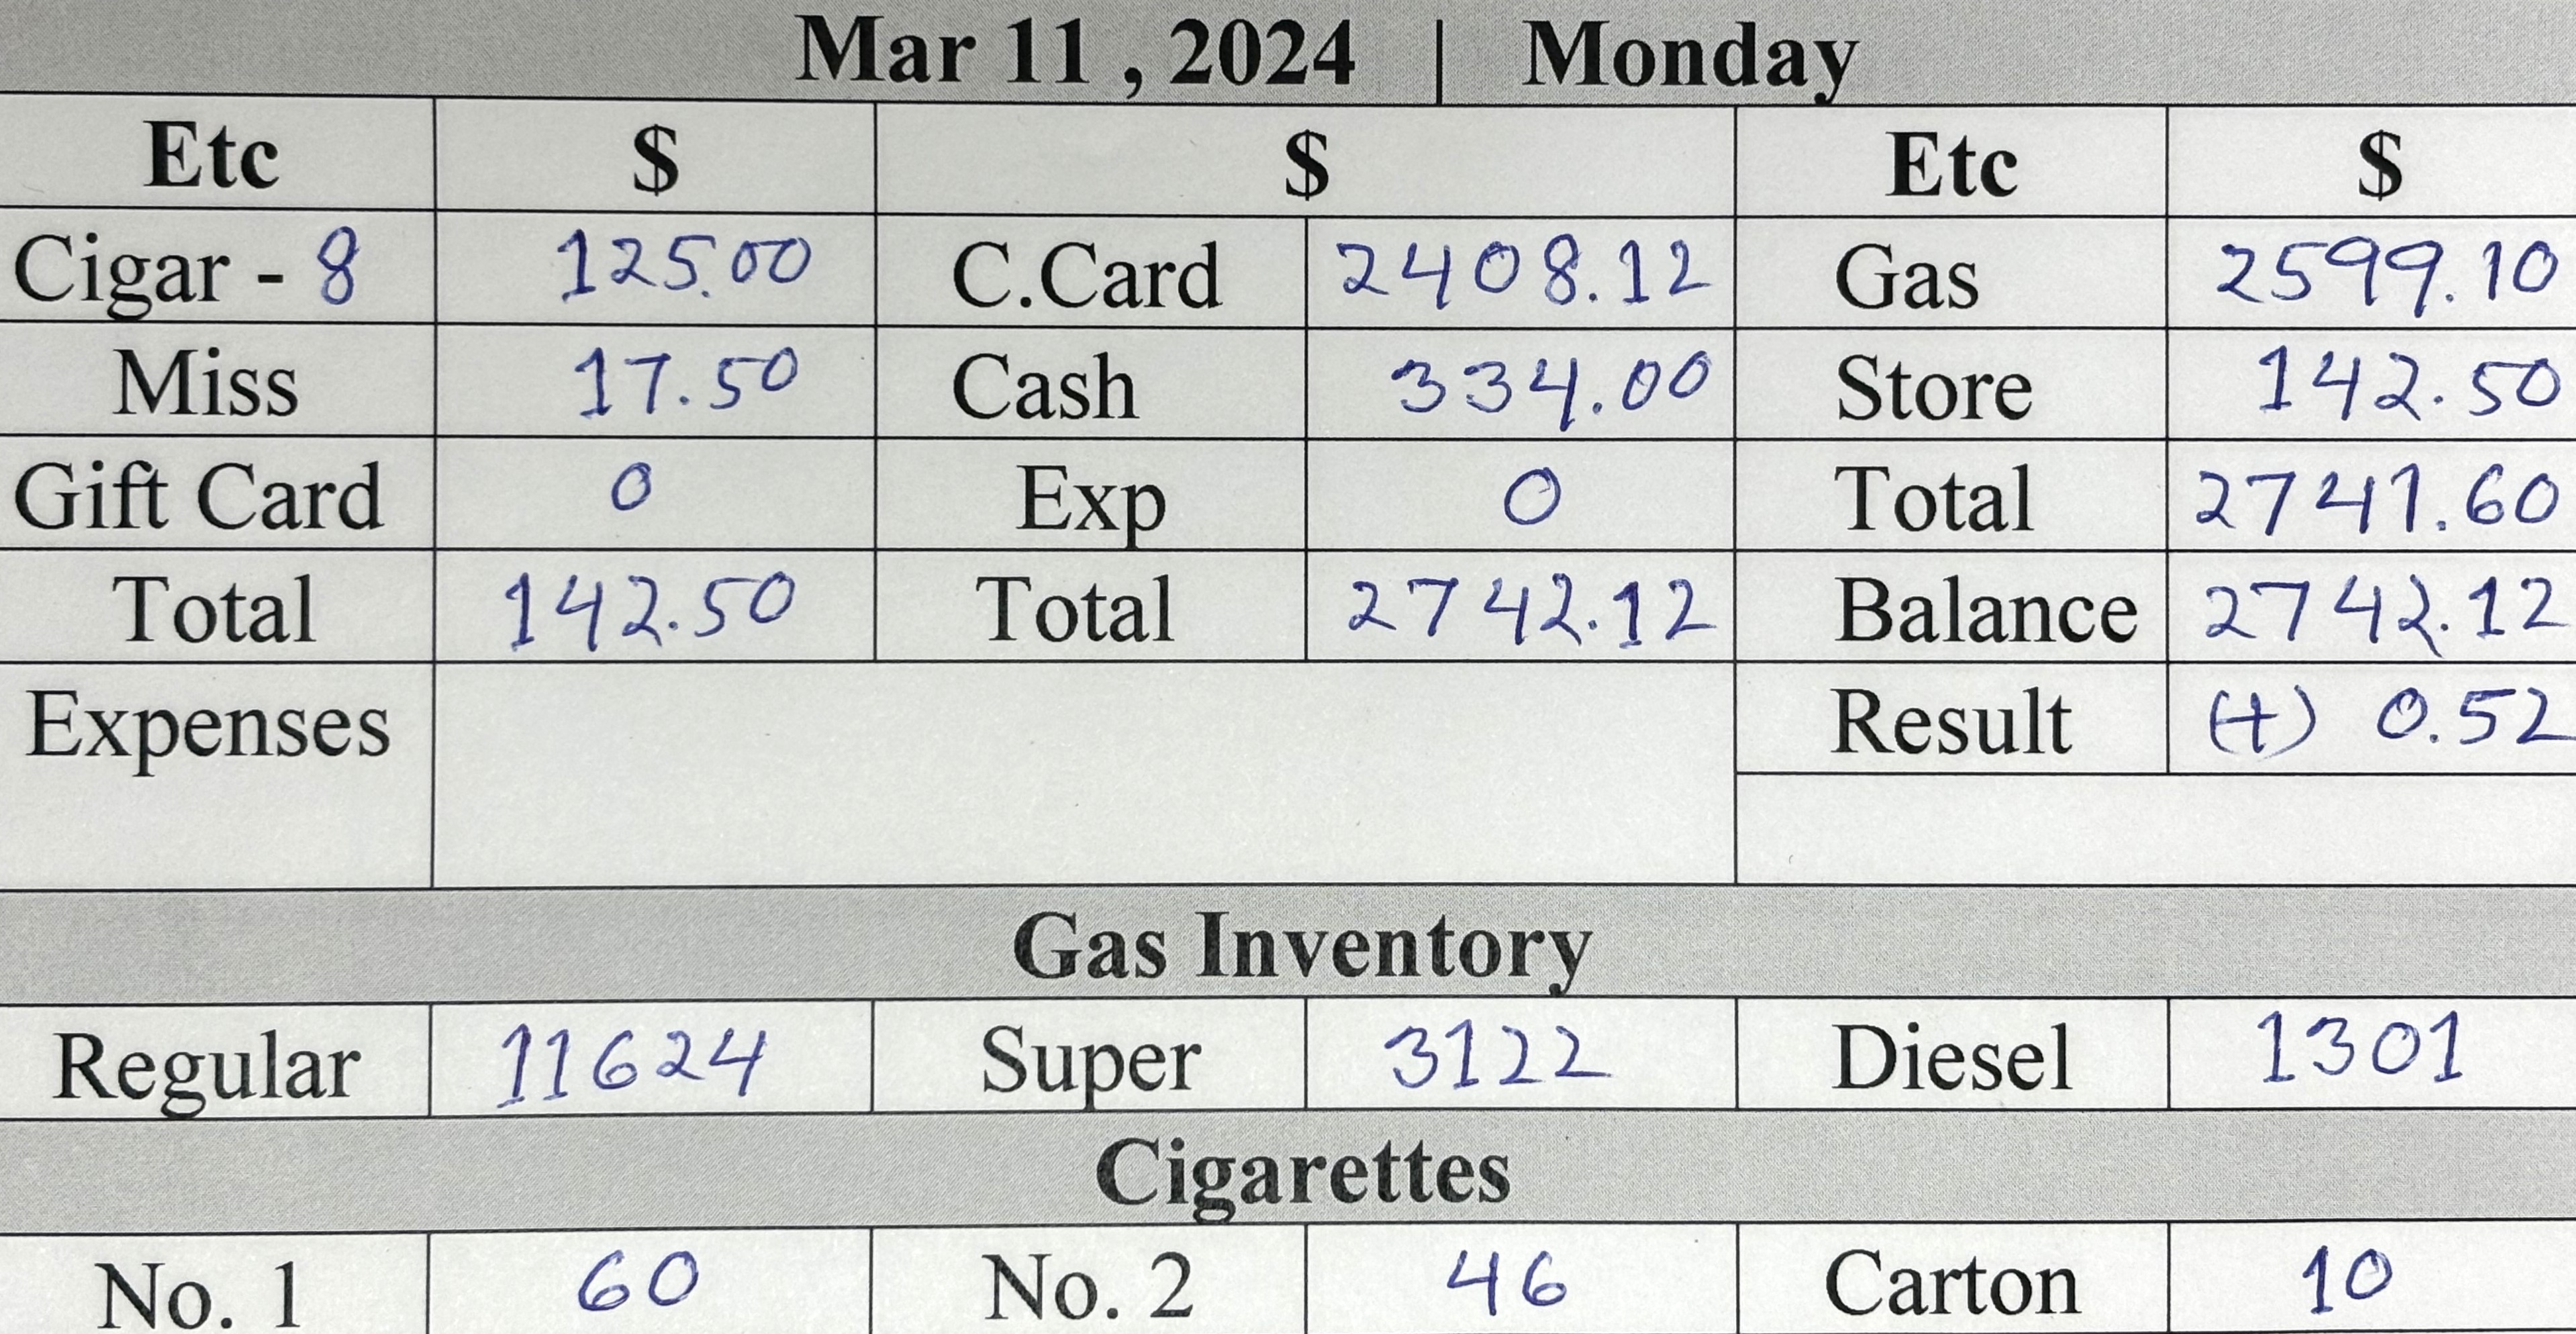 Mar 11 , 2024 | Monday
Etc $ $ Etc $
Cigar - 8 125.00 C.Card 2408.12 Gas 2599.10
Miss 17.50 Cash 334.00 Store 142.50
Gift Card 0 Exp 0 Total 2741.60
Total 142.50 Total 2742.12 Balance 2742.12
Expenses Result (+) 0.52
Gas Inventory
Regular 11624 Super 3122 Diesel 1301
Cigarettes
No. 1 60 No. 2 46 Carton 10